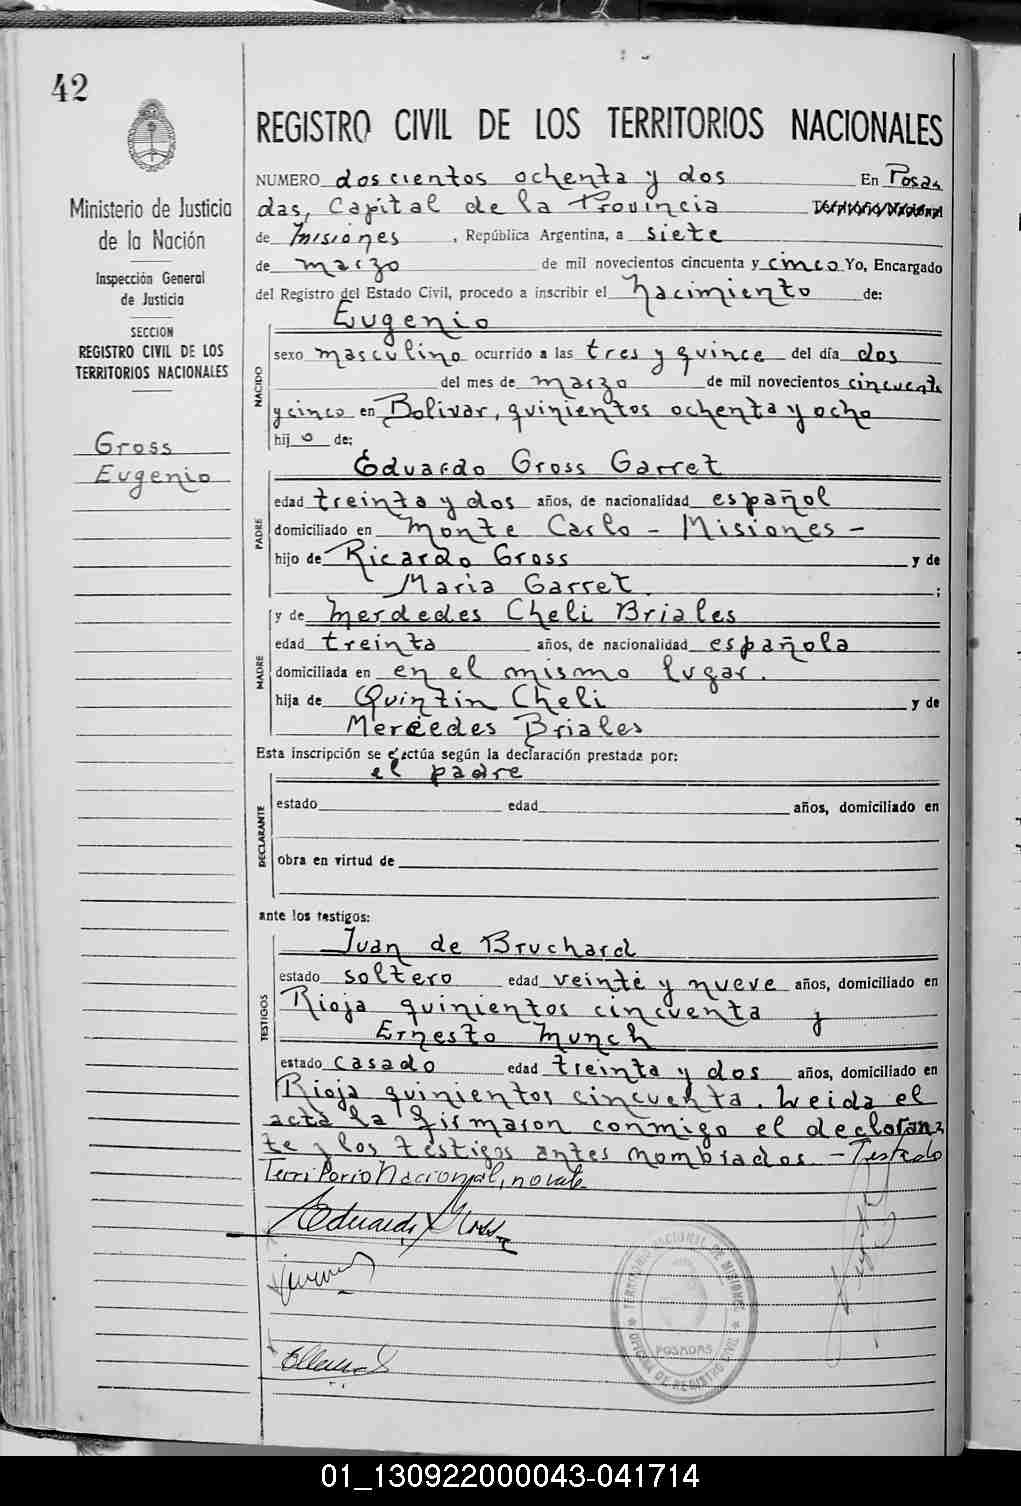 42
REGISTRO CIVIL DE LOS TERRITORIOS NACIONALES
Ministerio de Justicia
de la Nación
Inspección General
de Justicia
SECCION
REGISTRO CIVIL DE LOS
TERRITORIOS NACIONALES
Gross
Eugenio
NUMERO doscientos ochenta y dos En Posa-
das, Capital de la Provincia Territorio Nacional
de Misiones, República Argentina, a siete
de marzo de mil novecientos cincuenta y cinco Yo, Encargado
del Registro del Estado Civil, procedo a inscribir el nacimiento de:
NACIDO
Eugenio
sexo masculino ocurrido a las tres y quince del día dos
del mes de marzo de mil novecientos cincuenta
y cinco en Bolivar, quinientos ochenta y ocho
hij o de:
PADRE
Eduardo Gross Garret
edad treinta y dos años, de nacionalidad español
domiciliado en Monte Carlo - Misiones -
hijo de Ricardo Gross y de
Maria Garret ;
MADRE
y de Merdedes Cheli Briales
edad treinta años, de nacionalidad española
domiciliada en en el mismo lugar.
hija de Quintin Cheli y de
Mercedes Briales
Esta inscripción se efectúa según la declaración prestada por:
el padre
DECLARANTE
estado edad años, domiciliado en
obra en virtud de
ante los testigos:
TESTIGOS
Juan de Bruchard
estado soltero edad veinte y nueve años, domiciliado en
Rioja quinientos cincuenta y
Ernesto Munch
estado casado edad treinta y dos años, domiciliado en
Rioja quinientos cincuenta. Leida el
acta la firmaron conmigo el declaran-
te y los testigos antes nombrados. - Testado
Territorio Nacional, no vale.
Eduardo Gross
TERRITORIO NACIONAL DE MISIONES
POSADAS
OFICINA DE REGISTRO CIVIL
01_130922000043-041714